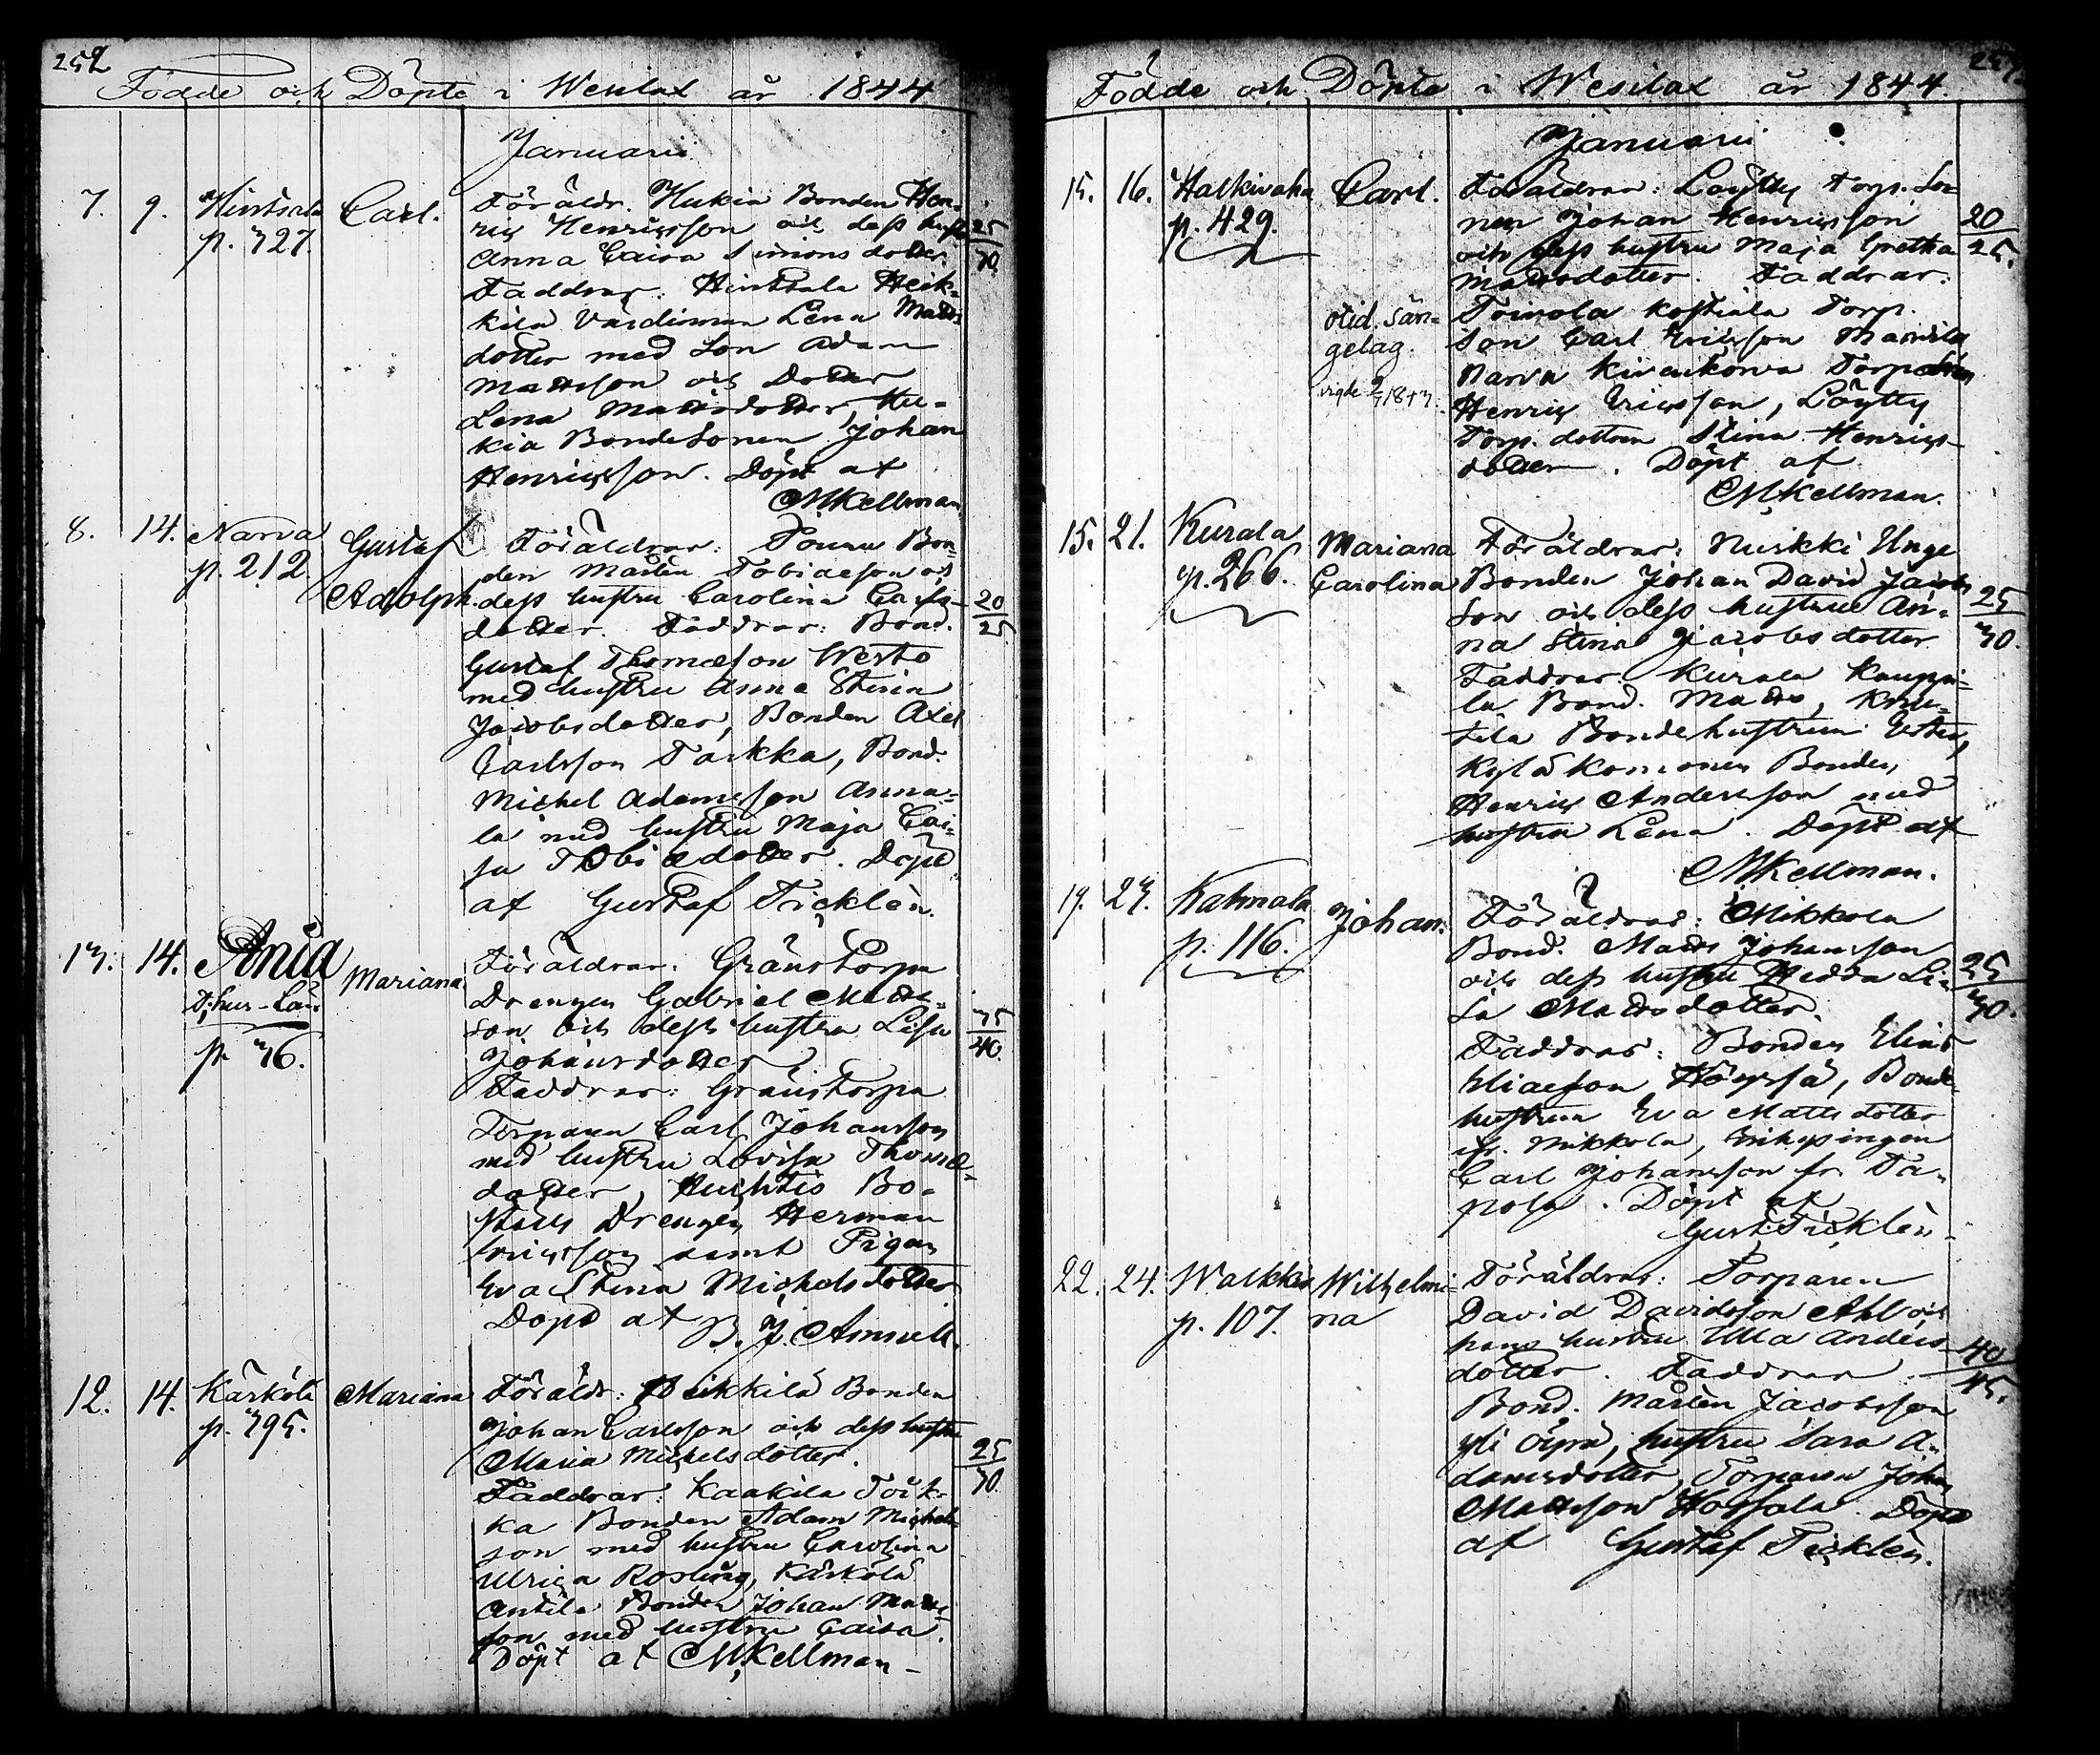 252
Födde och Döpte i Wesilax år 1844
Januarii
7. 9. Hintsala Carl. Föräldr. Hukia Bonden Hen-
p. 327. rics Henricsson och dess hust.
Anna Caisa Simonsdotter 25/30
Faddrar: Hintsala Heik-
kilä Värdinnan Lena Matts
dotter med Son Adam
Mattsson och Dotter
Lena Mattsdotter, Hu-
kia Bondesonen Johan
Henricsson. Döpt af
MKellman
8. 14. Narva Gustaf Föräldrar: Bon-
p. 212 Adolph. den Mårten Tobiaeson och
dess hustru Carolina Carls- 20/25
dotter. Faddrar: Bond.
Gustaf Thomaeson Westo
med hustru Anna Stina
Jacobsdotter, Bonden Axel
Carlsson Tarkka, Bond.
Michel Adamsson Anna-
la med hustru Maja Cai-
sa Tobiaedotter. Döpt
af Gustaf Ticklén.
13. 14. Ania Mariana Föräldrar: Gränstorpa
p. 36. Drengen Gabriel Matts-
son och dess hustru Lisa 35/40
Johansdotter
Faddrar: Gränstorpa
Torparen Carl Johansson
med hustru Lovisa Thomae-
dotter, Huihtis Bo-
ställs Drengen Herman
Ericsson samt Pigan
Eva Stina Michelsdotter
Döpt af B. J. Amnell.
12. 14. Kärkölä Mariana Föräldr: Heikkilä Bonden
p. 395. Johan Carlsson och dess hustru
Maria Michelsdotter. 25/30
Faddrar: Kaakila Töik-
ka Bonden Adam Michels-
son med hustru Carolina
Ulrica Rosling, Kärkölä
Antila Bonden Johan Matts-
son med hustru Caisa.
Döpt af MKellman
253.
Födde och Döpte i Wesilax år 1844.
Januarii
15. 16. Halkivaha Carl. Föräldrar: Löytty Torp. So-
p. 429. nen Johan Henricsson 20/25.
och dess hustru Maja Gretha
Mattsdotter. Faddrar:
otid. sän- Toivola Kostiala Torp.
gelag. Son Carl Ericsson Mannila
Narva Kivenkorva Torp.
Henric Ericsson, Löytty
Torp. dottren Stina Henrics-
dotter. Döpt af
MKellman.
15. 21. Kurala Mariana Föräldrar: Nuikki Unge
p. 266. Carolina Bonden Johan David Jacobs
son och dess hustru An- 25/30.
na Stina Jacobsdotter
Faddrar Kurala Kauppi-
la Bond. Matts, Knu-
tila Bondehustrun Ester,
Kylä Konionen Bonden
Henric Andersson med
hustru Lena. Döpt af
MKellman.
19. 23. Kahnala Johan. Föräldrar: Mikkola
p. 116. Bond. Matts Johansson
och dess hustru Hedda Li- 25/30.
sa Mattsdotter.
Faddrar: Bonden Elias
Eliaeson Höyssä, Bonde-
hustrun Eva Mattsdotter
fr. Mikkola, Inhysingen
Carl Johansson fr. Ta-
pola. Döpt af
Gust. Ticklén.
22. 24. Walkkis Wilhelmi- Föräldrar: Torparen
p. 107. na David Davidsson Ahl och
hans hustru Ulla Anders 40/45.
dotter. Faddrar
Bond. Mårten Jacobsson
Yli Öipä, hustru Sara A-
damsdotter, Torparen Johan
Mattsson Hossala. Döpt
af Gustaf Ticklén.